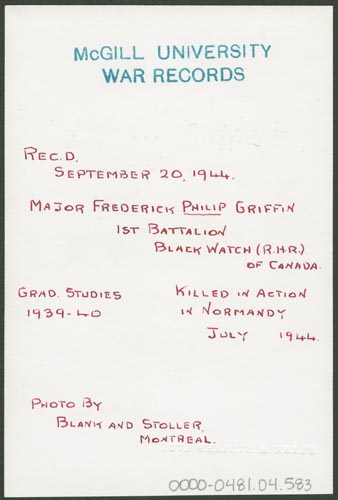 McGILL UNIVERSITY
WAR RECORDS
REC.D.
SEPTEMBER 20, 1944.
MAJOR FREDERICK PHILIP GRIFFIN
1ST BATTALION
BLACK WATCH (R.H.R.)
OF CANADA.
GRAD. STUDIES
1939-40
KILLED IN ACTION
IN NORMANDY
JULY 1944.
PHOTO BY
BLANK AND STOLLER,
MONTREAL.
0000-0481.04.583